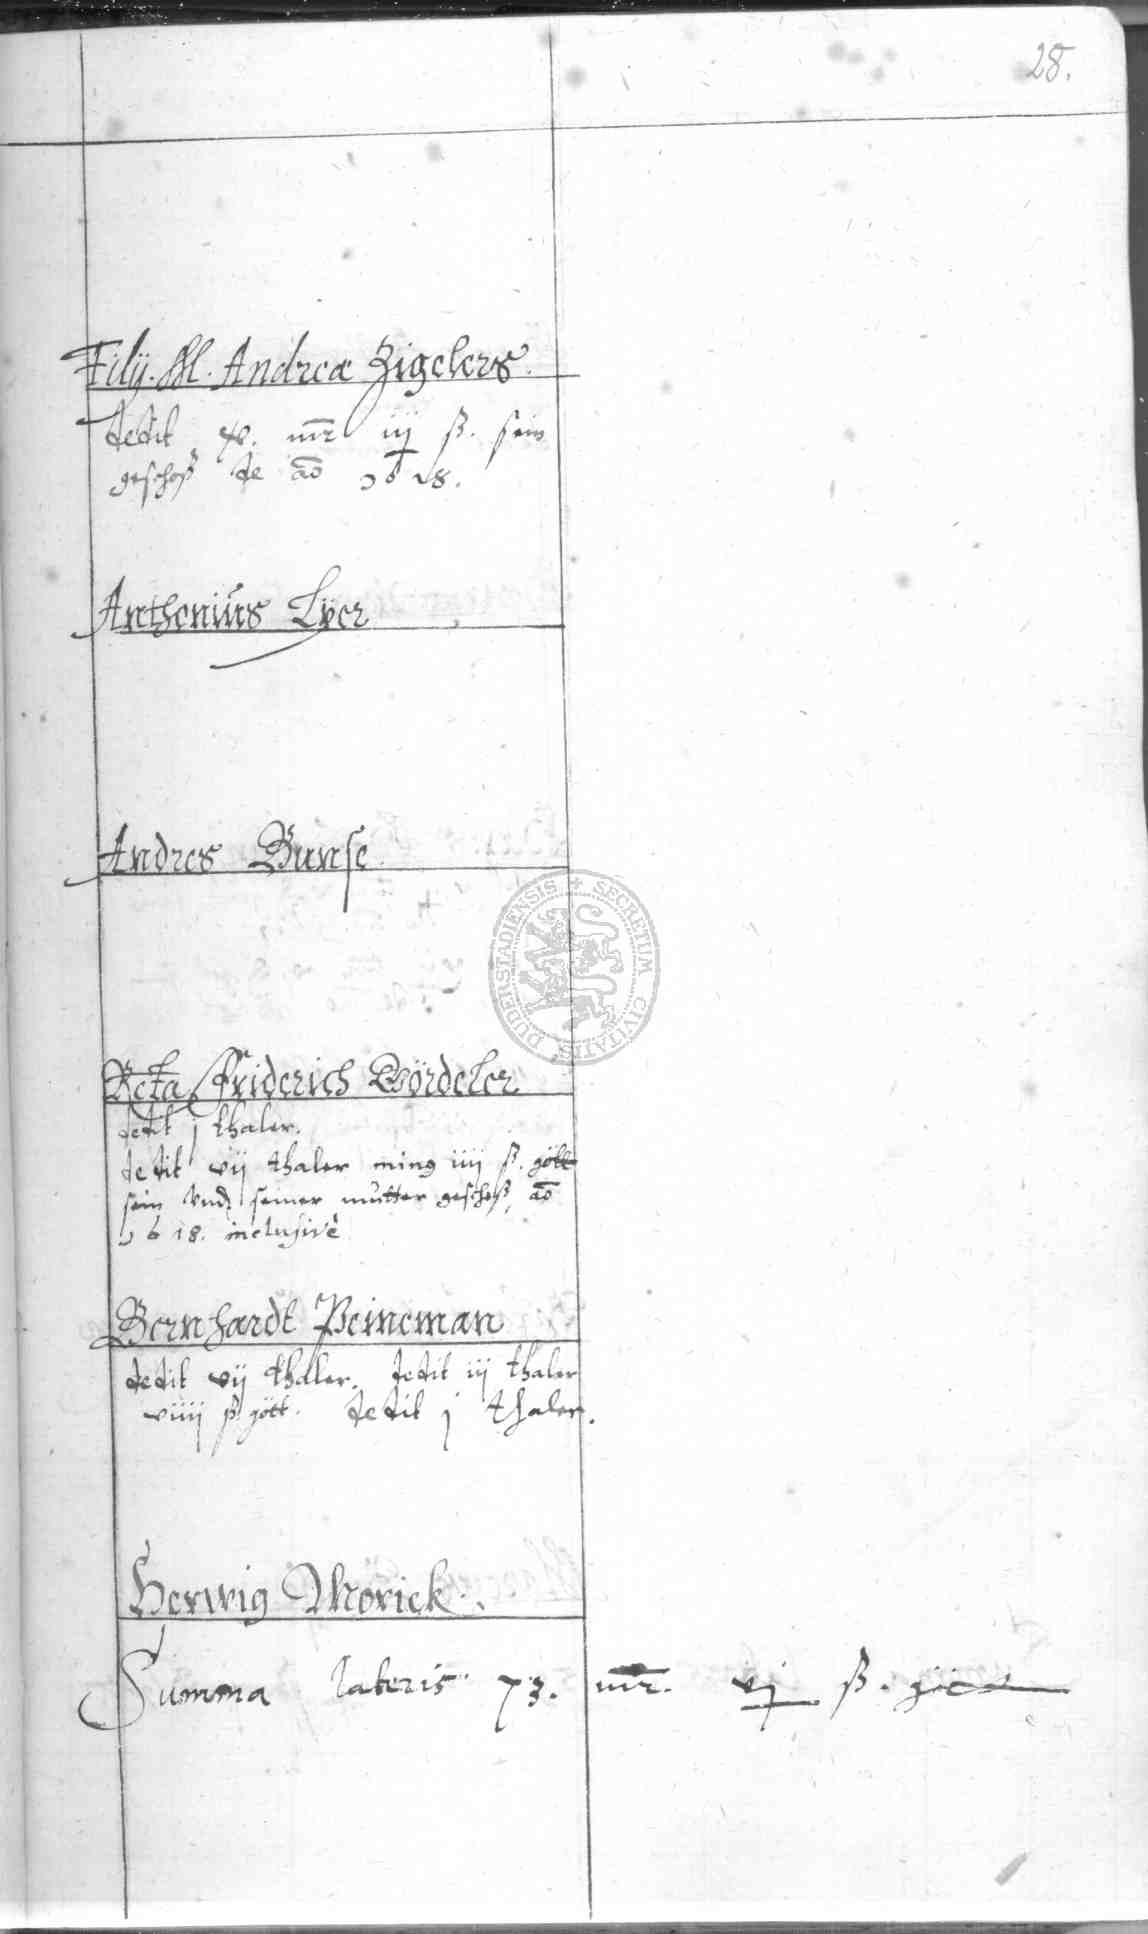 28.
Filÿ. M. Andreæ Zigelers.
dedit xv. mr iij ß. sein
geschoß de ao 1618.
Anthonius Lÿer
Andres Bunse
Relta Friderich Wördeler
dedit j thaler.
dedit vij thaler ming iiij ß. gött
sein vnd seiner mutter geschoß, ao
1618. inclusivè
Bernhardt Peineman
dedit vij thaler. dedit iij thaler
viiij ß gött. dedit j thaler.
Herwig Morick.
Summa lateris 73. mr. vj ß. gött
SECRETUM CIVITATIS DUDERSTADIENSIS